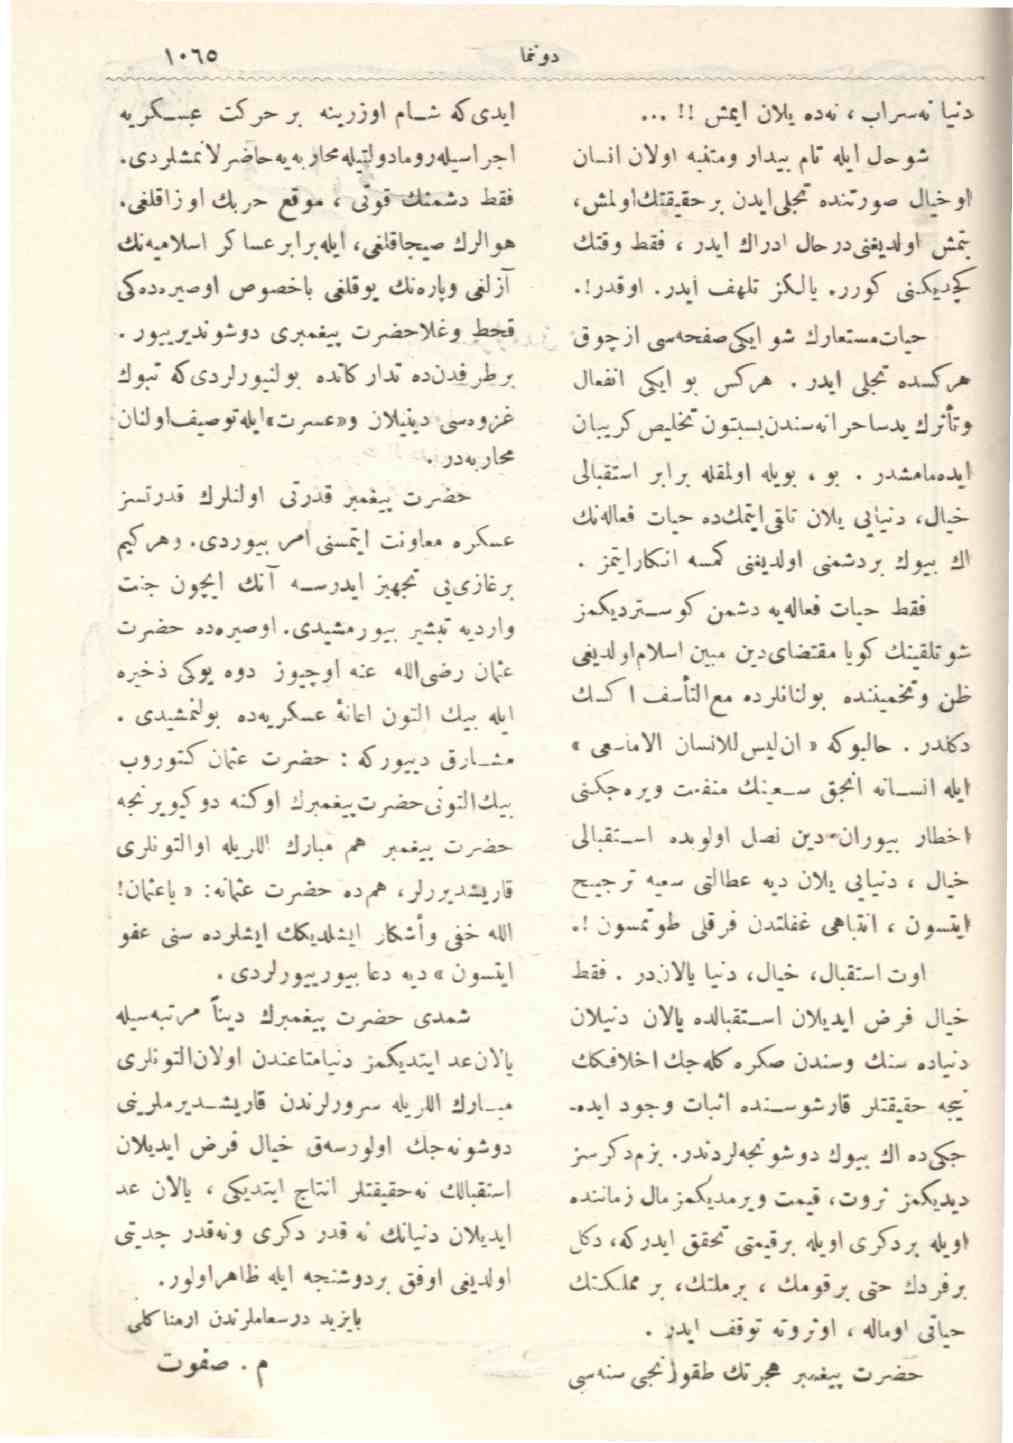 ١٠٦٥
دوننما
دنیا نه‌سراب ، نه‌ده یلان ایمش !! ...
شو حال ایله تام بیدار ومتنبه اولان انسان
او خیال صورتنده تجلی ایدن بر حقیقتك اولمش،
یتمش اولدیغنی درحال ادراك ایدر ، فقط وقتك
کچدیکنی کورر. یالکز تلهف ایدر. اوقدر!.
حیات مستعارك شو ایکی صفحه‌سی از چوق
هرکسده تجلی ایدر . هرکس بو ایکی انفعال
وتأثرك ید ساحرانه سندن بسبتون تخلیص کریبان
ایده‌مامشدر . بو ، بویله اولمقله برابر استقبالی
خیال، دنیایی یلان تلقی ایتمك‌ده حیات فعاله‌نك
اك بیوك بردشمنی اولدیغنی کمسه انکار ایتمز .
فقط حیات فعاله‌یه دشمن کوستردیکمز
شو تلقینك کویا مقتضای دین مبین اسلام اولدیغی
ظن وتخمیننده بولنانلرده مع التأسف اکسك
دکلدر . حالبوکه « ان لیس للانسان الا ماسعی »
ایله انسانه انجق سعینك منفعت ویره جکنی
اخطار بیوران دین نصل اولوبده استقبالی
خیال ، دنیایی یلان دیه عطالتی سعیه ترجیح
ایتسون ، انتباهی غفلتدن فرقلی طوتمسون !.
اوت استقبال، خیال، دنیا یالاندر . فقط
خیال فرض ایدیلان استقبالده یالان دنیلان
دنیاده سنك وسندن صکره کله‌جك اخلافکك
نیجه حقیقتلر قارشوسنده اثبات وجود ایده‌-
جکی‌ده اك بیوك دوشونجه‌لردندر. بزم دکرسز
دیدیکمز ثروت، قیمت ویرمدیکمز مال زماننده
اویله بردکری اویله برقیمتی تحقق ایدرکه، دکل
برفردك حتی برقومك ، برملتك، بر مملکتك
حیاتی اوماله ، اوثروته توقف ایدر .
حضرت پیغمبر هجرتك طقوزنجی سنه‌سی
ایدی که شام اوزرینه بر حرکت عسکریه
اجراسیله روما دولتیله محاربه‌یه حاضرلانمشلردی.
فقط دشمنك قوتی ، موقع حربك اوزاقلغی.
هوالرك صیجاقلغی، ایله برابر عساکر اسلامیه‌نك
آزلغی وپاره‌نك یوقلغی باخصوص اوصیره‌ده‌کی
قحط وغلا حضرت پیغمبری دوشوندیریبور .
برطرفدن‌ده تدارکاتده بولنیورلردی که تبوك
غزوه‌سی دینیلان و«عسرت» ایله توصیف اولنان
محاربه‌در .
حضرت پیغمبر قدرتی اولنلرك قدرتسز
عسکره معاونت ایتمسنی امر بیوردی. وهرکیم
برغازی‌یی تجهیز ایدرسه آنك ایچون جنت
واردیه تبشیر بیورمشیدی. اوصیره‌ده حضرت
عثمان رضی الله عنه اوچیوز دوه یوکی ذخیره
ایله بیك التون اعانهٔ عسکریه‌ده بولنمشیدی .
مشارق دییورکه : حضرت عثمان کتوروب
بیك التونی حضرت پیغمبرك اوکنه دوکیویرنجه
حضرت پیغمبر هم مبارك اللریله اوالتونلری
قاریشدیررلر، هم‌ده حضرت عثمانه: « یاعثمان!
الله خفی وأشکار ایشلدیکك ایشلرده سنی عفو
ایتسون » دیه دعا بیورییورلردی .
شمدی حضرت پیغمبرك دیناً مرتبه‌سیله
یالان عد ایتدیکمز دنیا متاعندن اولان التونلری
مبارك اللریله سرورلرندن قاریشدیرملرینی
دوشونه‌جك اولورسه‌ق خیال فرض ایدیلان
استقبالك نه حقیقتلر انتاج ایتدیکی ، یالان عد
ایدیلان دنیانك نه قدر دکری ونه‌قدر جدیتی
اولدیغی اوفق بردوشنجه ایله ظاهر اولور.
بایزید درسعاملرندن ارمناکلی
م . صفوت